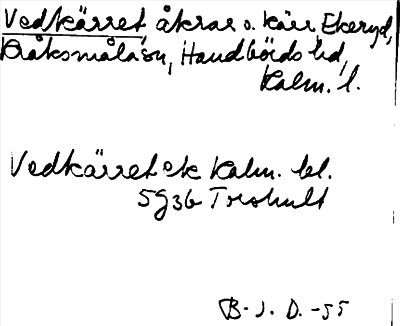 Vedkärret, åkrar o. kärr Ekeryd,
Kråksmåla sn, Handbörds hd,
Kalm. l.
Vedkärret ek Kalm. bl.
5g3b Troshult
B. J. D. -55